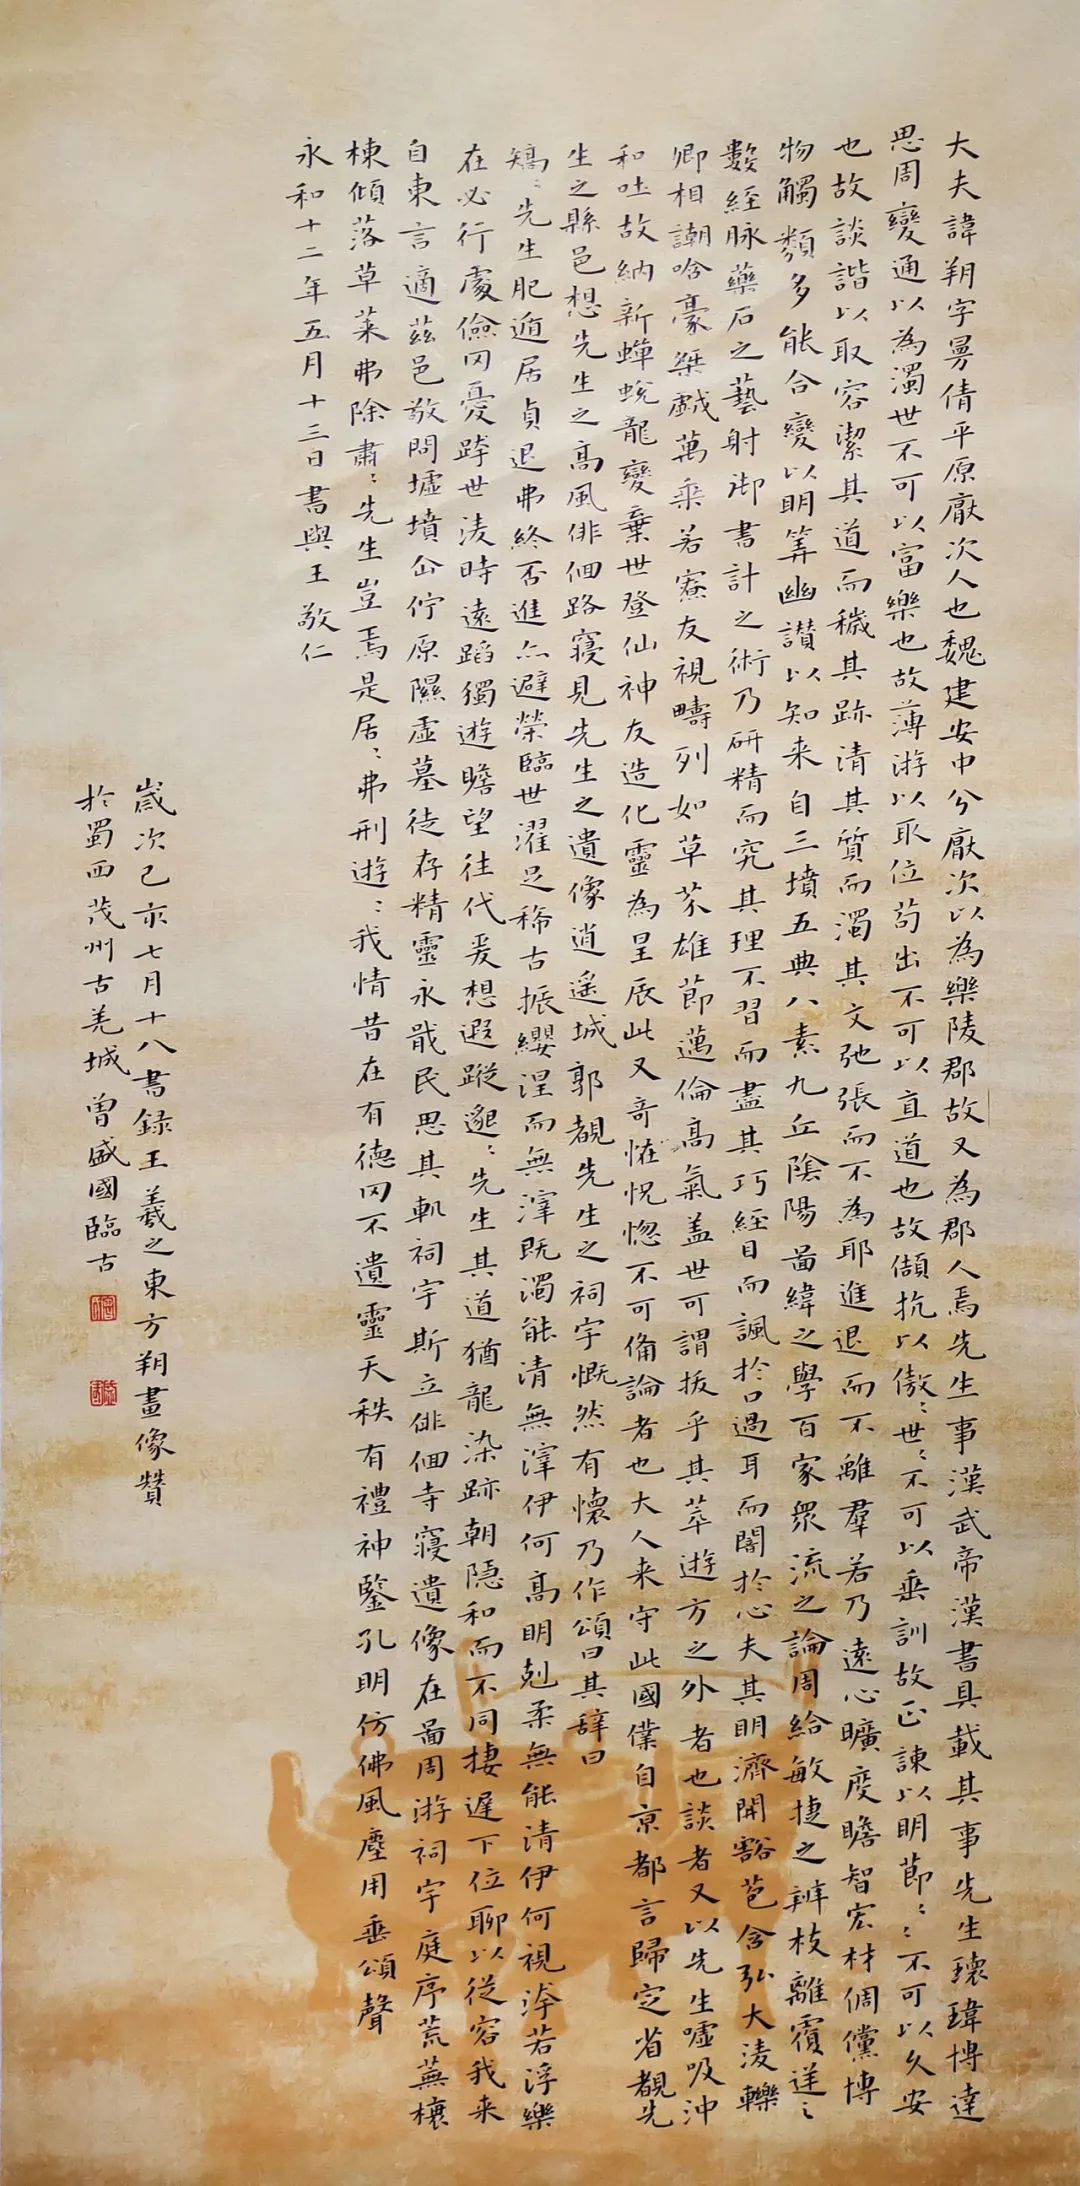 大夫諱朔字曼倩平原厭次人也魏建安中分厭次以為樂陵郡故又為郡人焉先生事漢武帝漢書具載其事先生瓌瑋博達
思周變通以為濁世不可以富樂也故薄游以取位苟出不可以直道也故頡抗以傲〻世〻不可以垂訓故正諫以明節〻不可以久安
也故談諧以取容潔其道而穢其跡清其質而濁其文弛張而不為耶進退而不離群若乃遠心曠度瞻智宏材倜儻博
物觸類多能合變以明筭幽讃以知来自三墳五典八素九丘陰陽啚緯之學百家衆流之論周給敏捷之辨枝離覆逆之
數経脉藥石之藝射御書計之術乃研精而究其理不習而盡其巧経目而諷扵口過耳而闇扵心夫其明濟開豁苞含弘大淩轢
卿相謿哈豪桀戯萬乗若寮友視疇列如草芥雄節邁倫高氣盖世可謂拔乎其萃遊方之外者也談者又以先生噓吸沖
和吐故納新蟬蛻龍變棄世登仙神友造化靈為星辰此又竒恠怳惚不可俻論者也大人来守此國僕自京都言歸定省覩先
生之縣邑想先生之高風俳佪路寑見先生之遺像逍遥城郭覩先生之祠宇慨然有懷乃作頌曰其辭曰
矯〻先生肥遁居貞退弗終否進亦避榮臨世濯足稀古振纓涅而無滓既濁能清無滓伊何高明剋柔無能清伊何視洿若浮樂
在必行處儉罔憂跨世淩時遠蹈獨遊瞻望往代爰想遐蹤邈〻先生其道猶龍染跡朝隠和而不同棲遲下位聊以從容我来
自東言適茲邑敬問墟墳企佇原隰虛墓徒存精靈永戢民思其軌祠宇斯立俳佪寺寑遺像在啚周游祠宇庭序荒蕪榱
棟傾落草萊弗除肅〻先生豈焉是居〻弗刑遊〻我情昔在有德罔不遺靈天秩有禮神鑒孔明仿佛風塵用垂頌聲
永和十二年五月十三日書與王敬仁
歲次己亥七月十八書録王羲之東方朔畫像贊
扵蜀西茂州古羌城曾盛國臨古